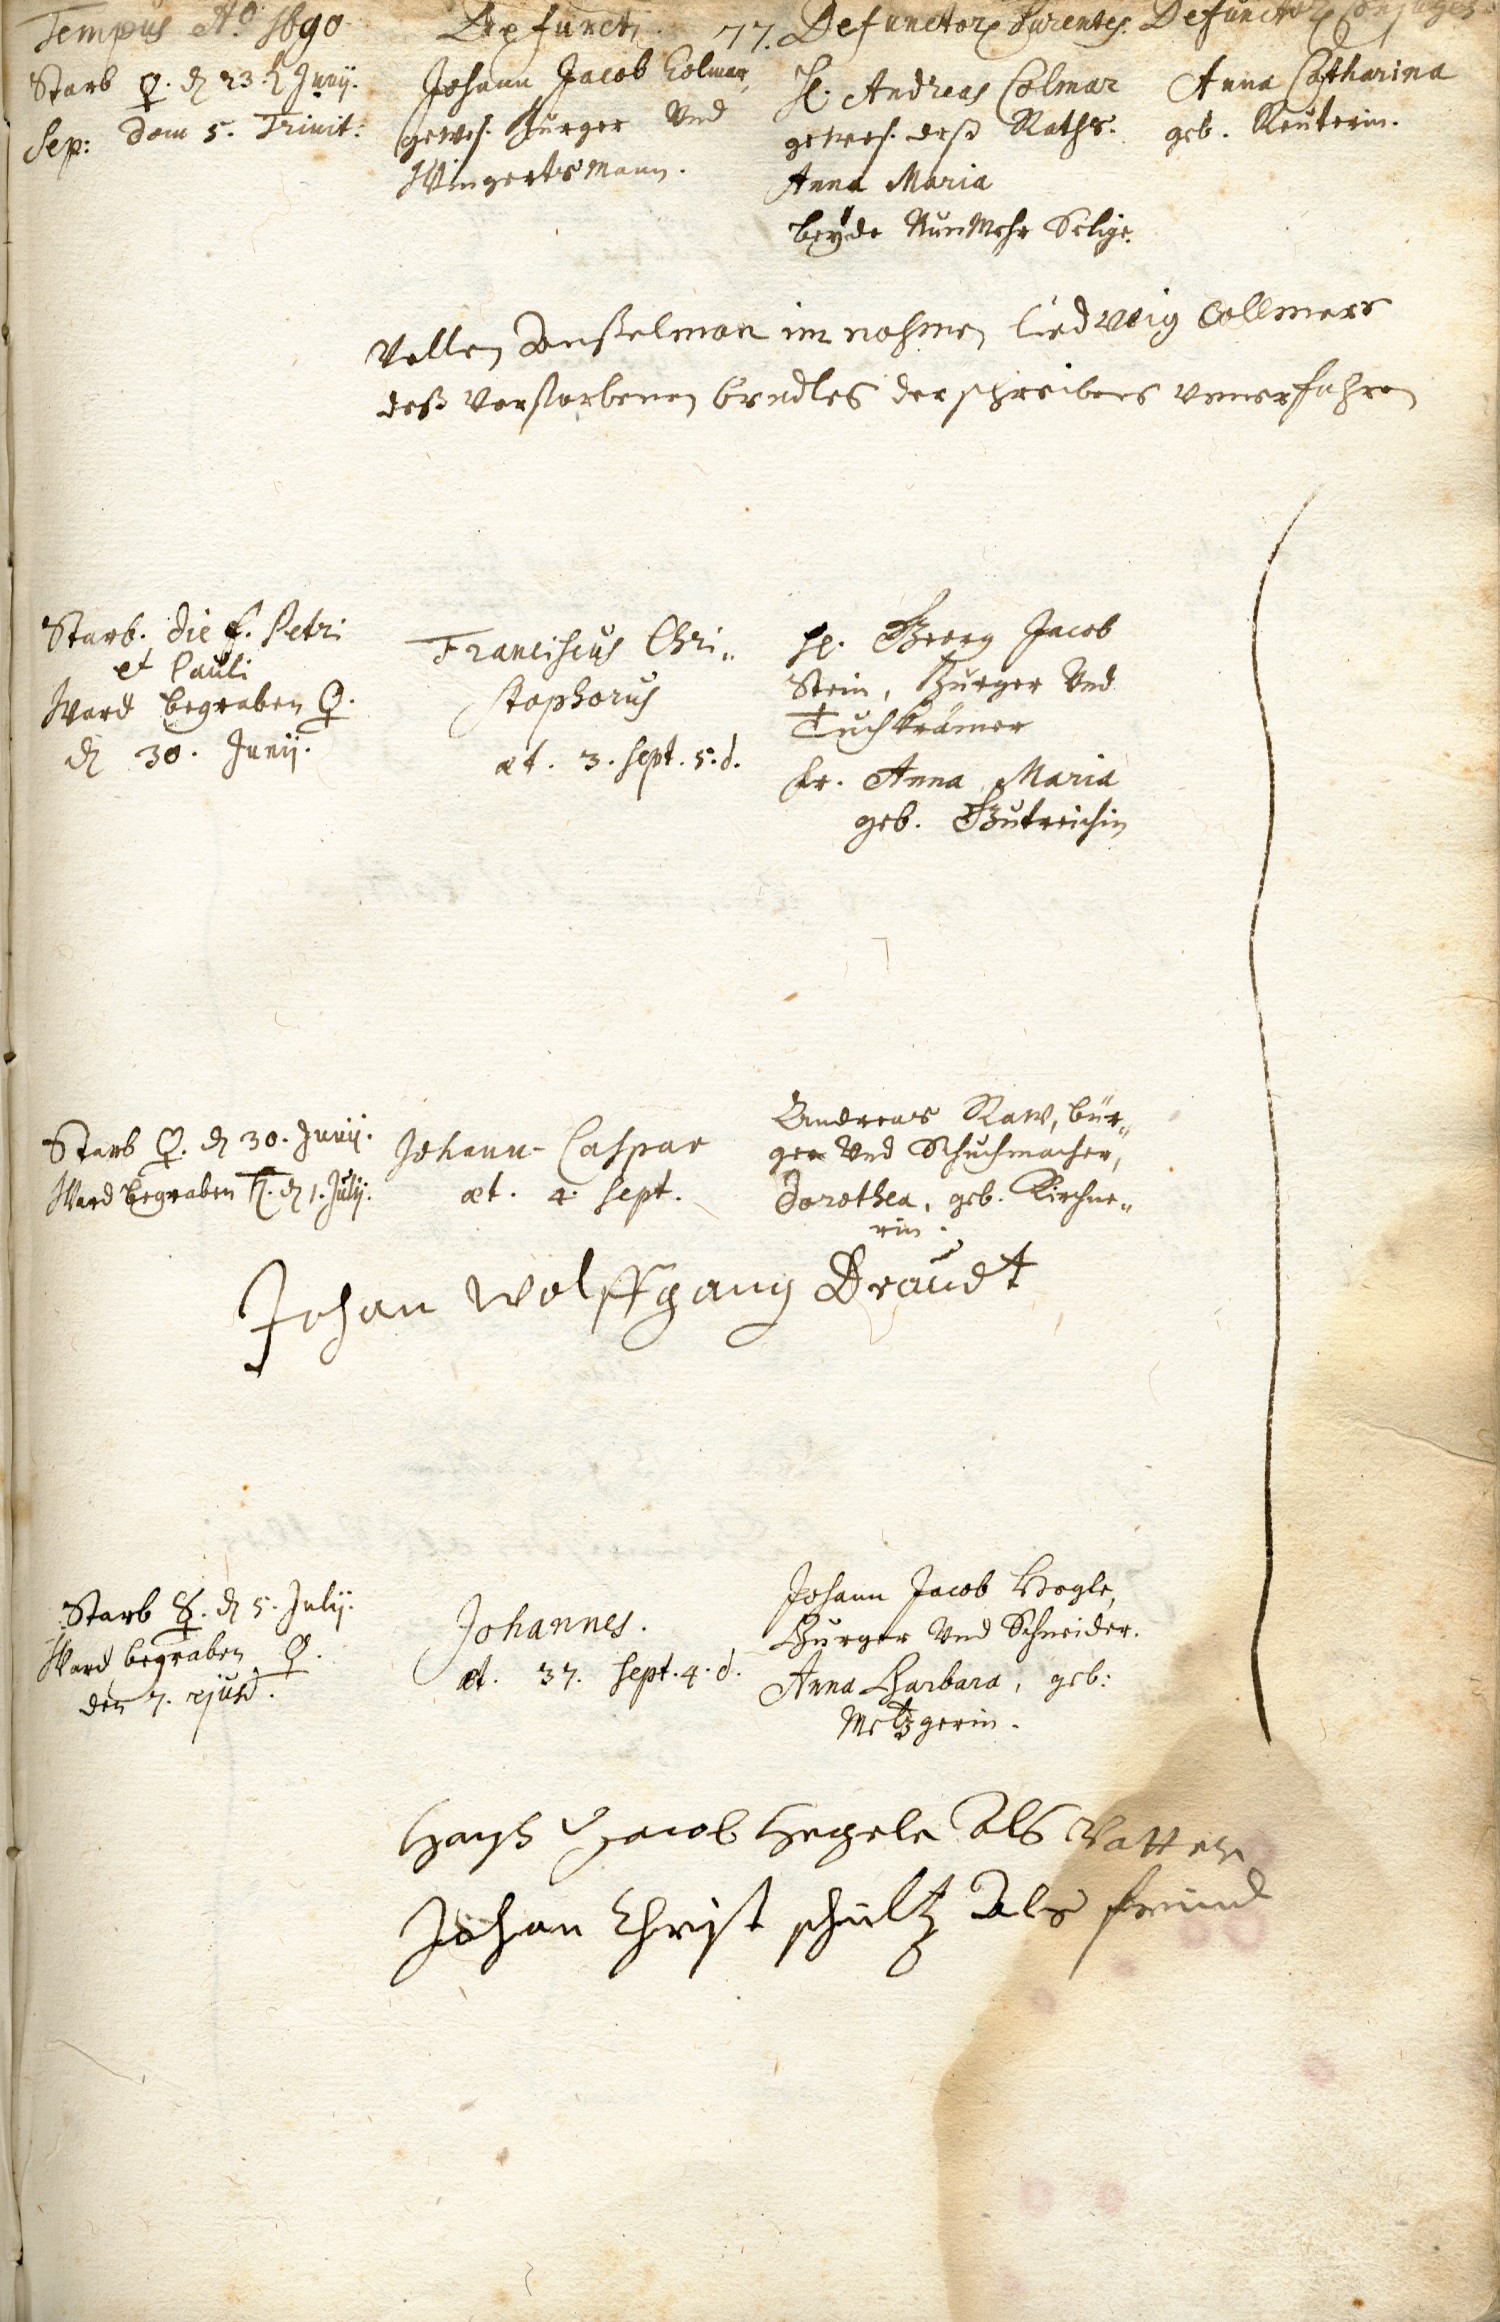 Tempus Aº 1690. Defuncti. 77. Defunctorꝝ Parentes. Defunctorꝝ Conjuges.
Starb ♀. d. 23. Junij.
Sep: Dom 5. Trinit:
Johann Jacob Colmar,
gewes. Burger Vnd
Wingertsmann.
H. Andreas Colmar
gewes. deß Raths.
Anna Maria
beyde NunMehr Selige.
Anna Catharina
geb. Reuterin.
Vellen im nahmen Ludwig Collmers
deß verstorbenen brudles der schreibens vnnerfahren
Starb. die f. Petri
et Pauli
Ward begraben ♀.
d. 30. Junij.
Franciscus Chri-
stophorus
æt. 3. sept. 5. d.
H. Georg Jacob
Stein, Burger Vnd
Tuchkrämer
fr. Anna Maria
geb. Gutreichin
Starb ♀. d. 30. Junij.
Ward begraben ♄. d. 1. Julij.
Johann-Caspar
æt. 4. sept.
Andreas Raw, bür-
ger Vnd Schuchmacher,
Dorothea, geb. Kirchne-
rin.
Johan Wolffgang Braudt
Starb ☿. d. 5. Julij.
Ward begraben ♀.
den 7. ejusd.
Johannes.
æt. 37. sept. 4. d.
Johann Jacob Hogle,
Burger Vnd Schneider.
Anna Barbara, geb:
Metzgerin.
Hanß Jacob Hegele Als Vatter
Johan Christ schultz Als freind